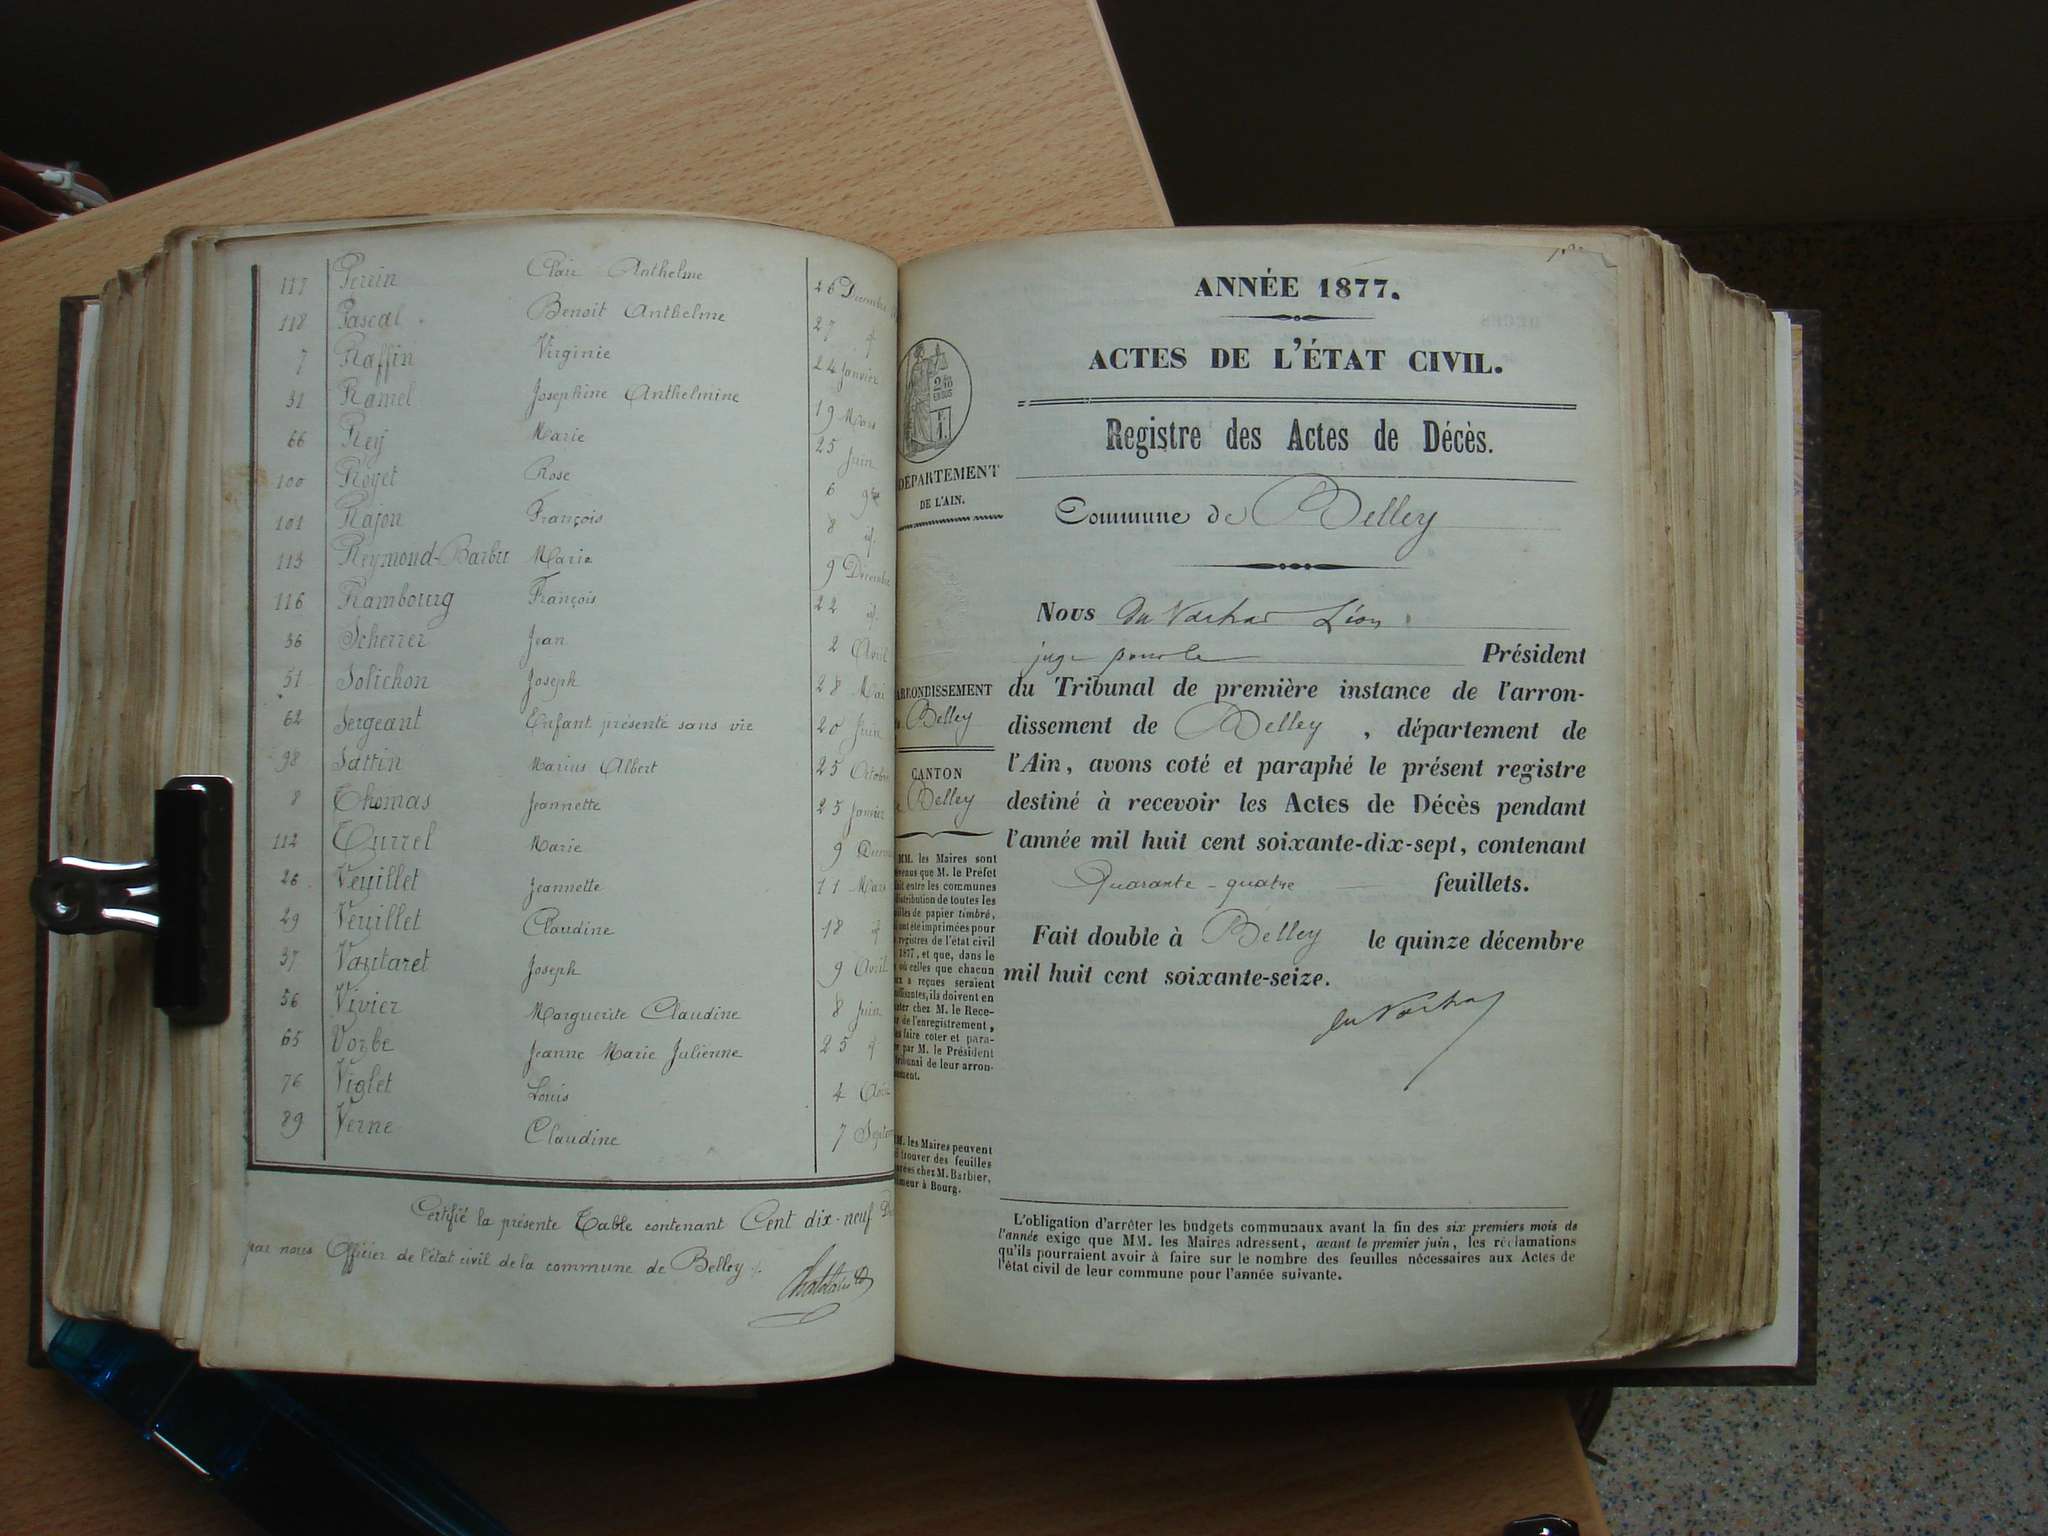 117 Perrin Clair Anthelme 26 Décembre
118 Pascal Benoit Anthelme 27 id
7 Raffin Virginie 24 Janvier
31 Ramel Josephine Anthelmine 19 Mars
66 Rey Marie 25 Juin
100 Royet Rose 6 9bre
101 Rajon François 8 id.
113 Reymond-Barbu Marie 9 Décembre
116 Rambourg François 22 id.
36 Scherrer Jean 2 Avril
51 Solichon Joseph 28 Mai
62 Sergeant Enfant présenté sans vie 20 Juin
98 Sattin Marius Albert 25 Octobre
8 Thomas Jeannette 25 Janvier
112 Turrel Marie 9
26 Veuillet Jeannette 11 Mars
29 Veuillet Claudine 18 id
37 Vautaret Joseph 9 Avril
56 Vivier Marguerite Claudine 8 Juin
65 Vorbe Jeanne Marie Julienne 25 id
76 Viglet Louis 4 Août
89 Verne Claudine 7 Septem
Certifié la présente Table contenant Cent dix-neuf
par nous Officier de l'état civil de la commune de Belley
ANNÉE 1877.
ACTES DE L'ÉTAT CIVIL.
Registre des Actes de Décès.
DÉPARTEMENT
DE L'AIN.
Commune de Belley
Nous Léon
juge pour le Président
du Tribunal de première instance de l'arron-
dissement de Belley, département de
l'Ain, avons coté et paraphé le présent registre
destiné à recevoir les Actes de Décès pendant
l'année mil huit cent soixante-dix-sept, contenant
Quarante-quatre feuillets.
Fait double à Belley le quinze décembre
mil huit cent soixante-seize.
ARRONDISSEMENT
Belley
CANTON
Belley
MM. les Maires sont
que M. le Préfet
entre les communes
distribution de toutes les
de papier timbré,
ont été imprimées pour
registres de l'état civil
1877, et que, dans le
où celles que chacun
a reçues seraient
ils doivent en
chez M. le Rece-
de l'enregistrement,
faire coter et para-
par M. le Président
Tribunal de leur arron-
M. les Maires peuvent
trouver des feuilles
chez M. Barbier,
à Bourg.
L'obligation d'arrêter les budgets communaux avant la fin des six premiers mois de
l'année exige que MM. les Maires adressent, avant le premier juin, les réclamations
qu'ils pourraient avoir à faire sur le nombre des feuilles nécessaires aux Actes de
l'état civil de leur commune pour l'année suivante.